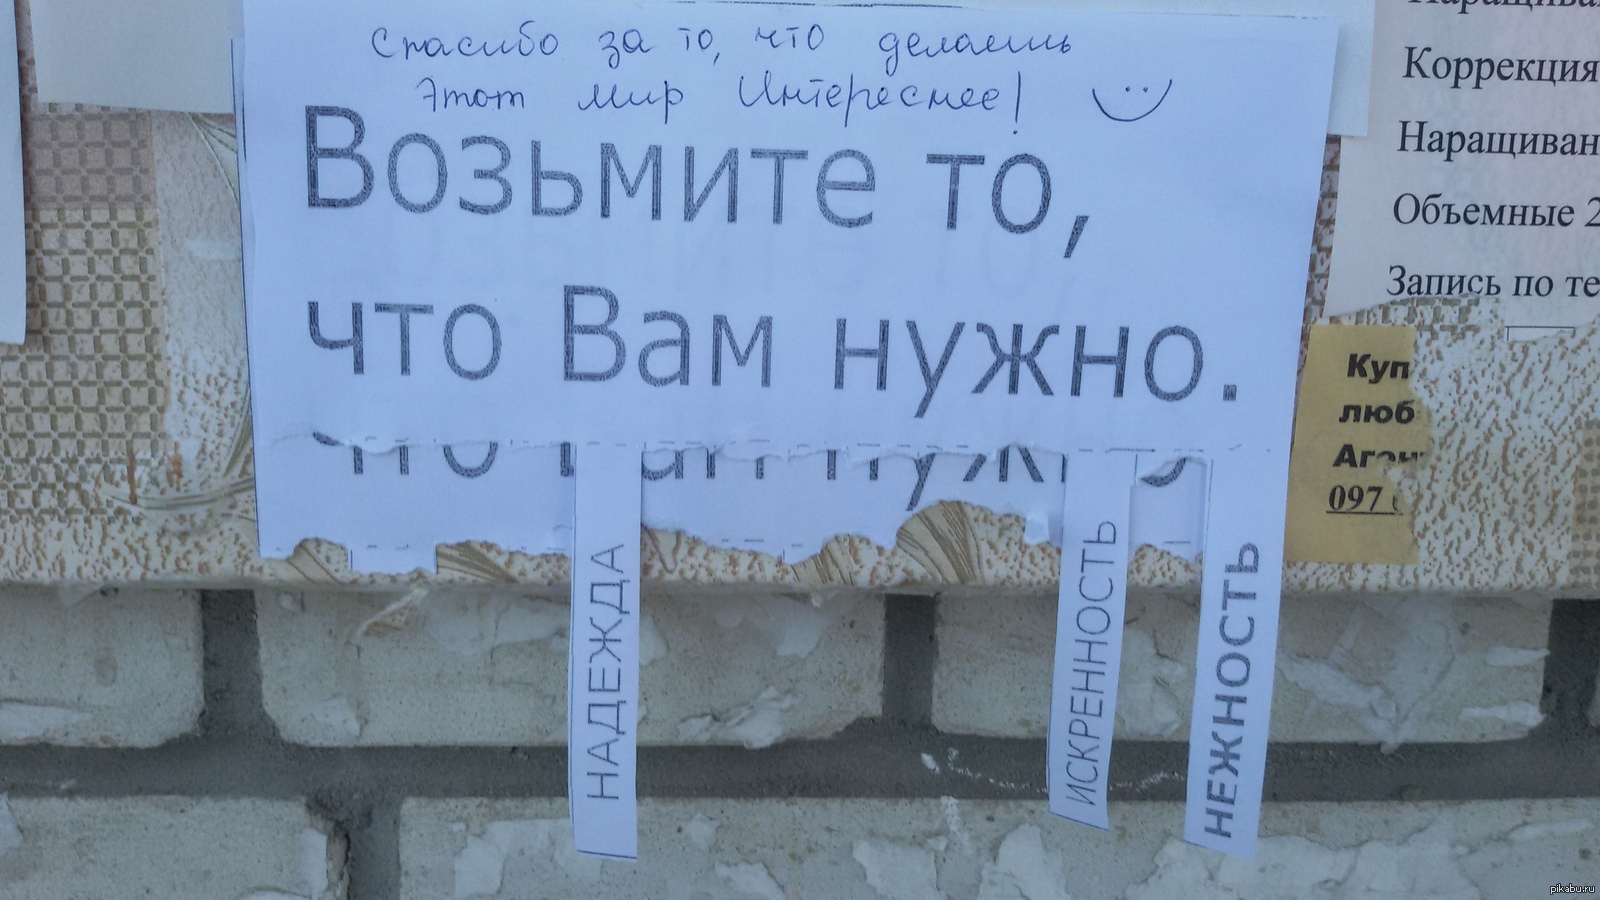 Спасибо за то, что делаешь
Этот мир Интереснее!
Возьмите то,
что Вам нужно.
НАДЕЖДА
ИСКРЕННОСТЬ
НЕЖНОСТЬ
Коррекция
Наращиван
Объемные 2
Запись по те
Куп
люб
Аген
097
pikabu.ru